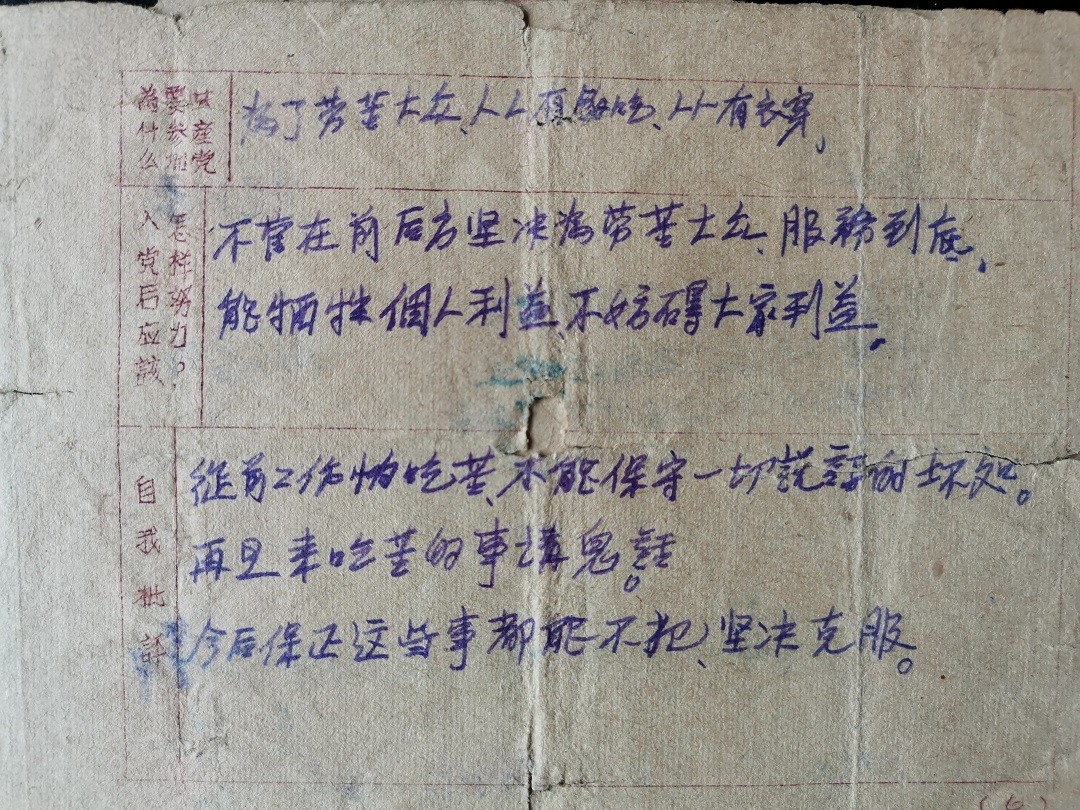 為什么要参加共産党
為了劳苦大众、人人有飯吃、人人有衣穿，
入党后应該怎样努力？
不管在前后方坚决為劳苦大众、服務到底，
能牺牲個人利益、不妨碍大家利益。
自我批評
從前工作怕吃苦、不能保守一切說話的坏处。
再是来吃苦的事講鬼話。
今后保证这些事都能不犯、坚决克服。